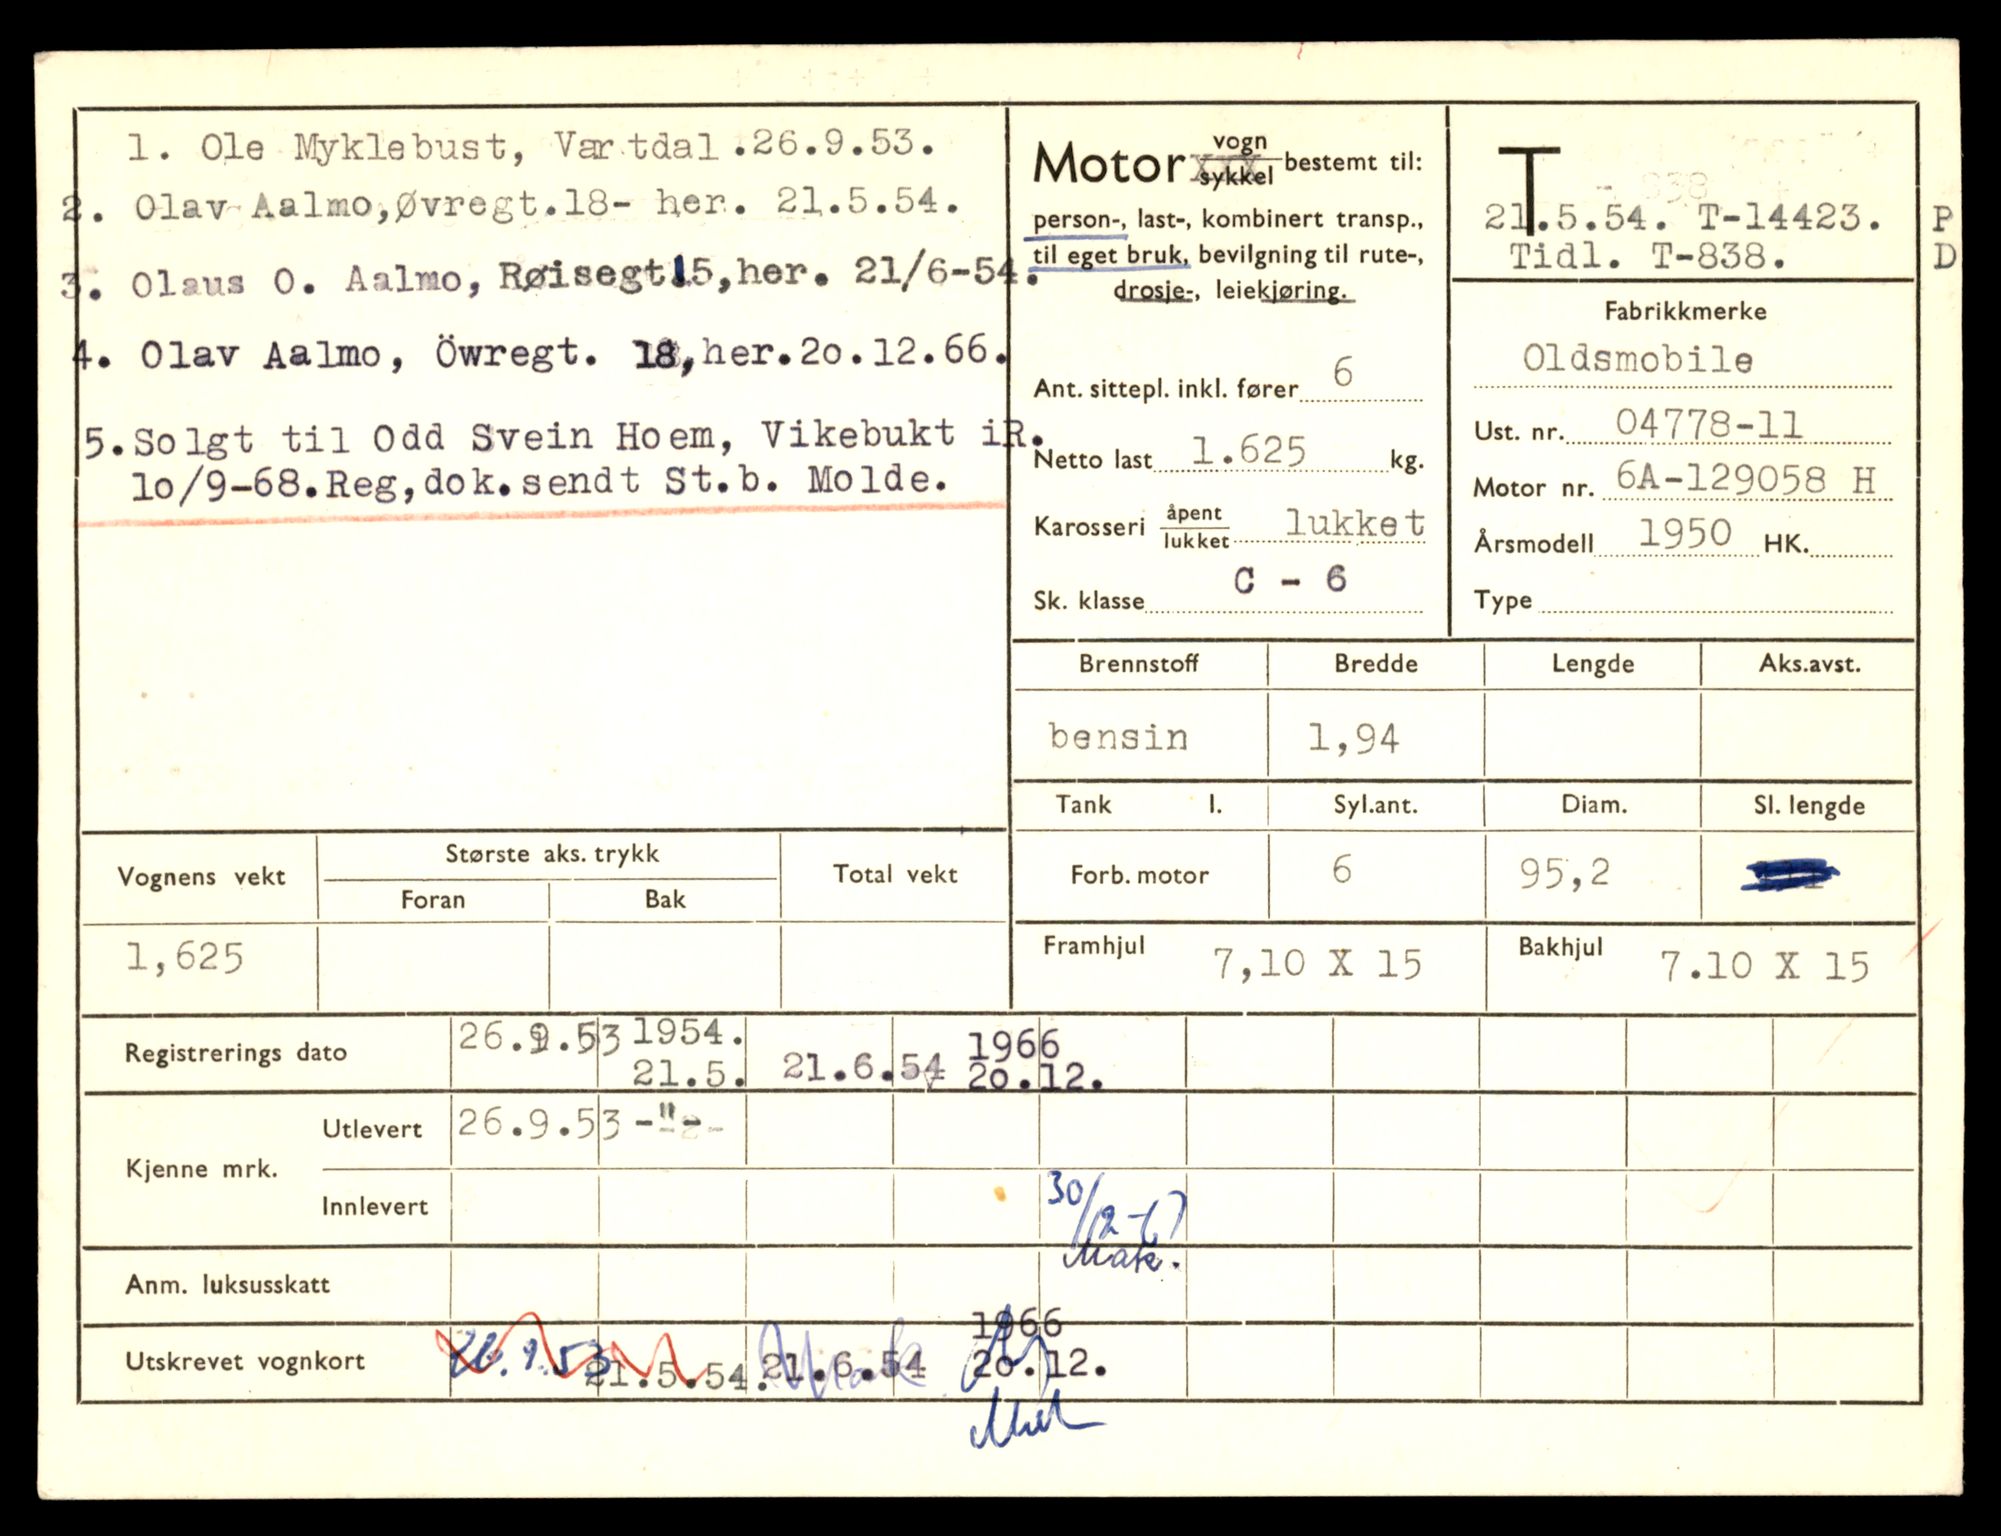 1. Ole Myklebust, Vartdal .26.9.53.
2. Olav Aalmo,Øvregt.18- her. 21.5.54.
3. Olaus O. Aalmo, Røisegt 15,her. 21/6-54.
4. Olav Aalmo, Öwregt. 18,her.2o.12.66.
5.Solgt til Odd Svein Hoem, Vikebukt iR.
1o/9-68.Reg,dok.sendt St.b. Molde.
Motor vogn sykkel bestemt til:
person-, last-, kombinert transp.,
til eget bruk, bevilgning til rute-,
drosje-, leiekjøring.
Ant. sittepl. inkl. fører 6
Netto last 1.625 kg.
Karosseri åpent lukket lukket
Sk. klasse C - 6
T
21.5.54. T-14423. P
Tidl. T-838. D
Fabrikkmerke
Oldsmobile
Ust. nr. 04778-11
Motor nr. 6A-129058 H
Årsmodell 1950 HK.
Type
Brennstoff Bredde Lengde Aks.avst.
bensin 1,94
Tank l. Syl.ant. Diam. Sl. lengde
Forb. motor 6 95,2
Framhjul 7,10 X 15 Bakhjul 7.10 X 15
Vognens vekt Største aks. trykk Total vekt
Foran Bak
1,625
Registrerings dato 26.9.53 1954. 21.5. 21.6.54 1966 2o.12.
Kjenne mrk. Utlevert 26.9.53 -"-
Innlevert 30/12-67
Mak.
Anm. luksusskatt
Utskrevet vognkort 26.9.53 21.5.54. 21.6.54 1966 2o.12.